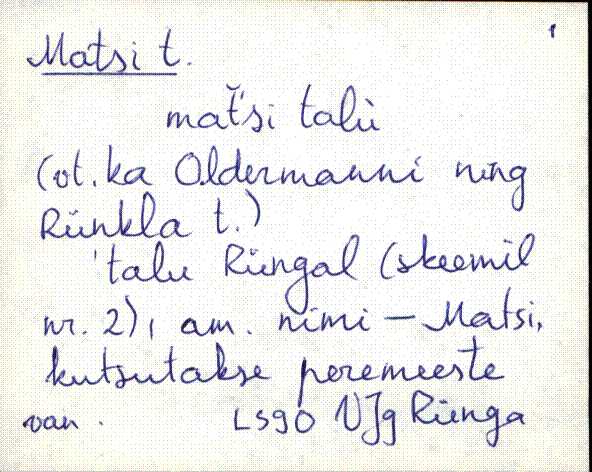 Matsi t.
mat̆'si talù
(vt. ka Oldermanni ning
Rünkla t.)
'talu Rüngal (skeemil
nr. 2), am. nimi – Matsi,
kutsutakse peremeeste
van. LS90 VJg Rünga